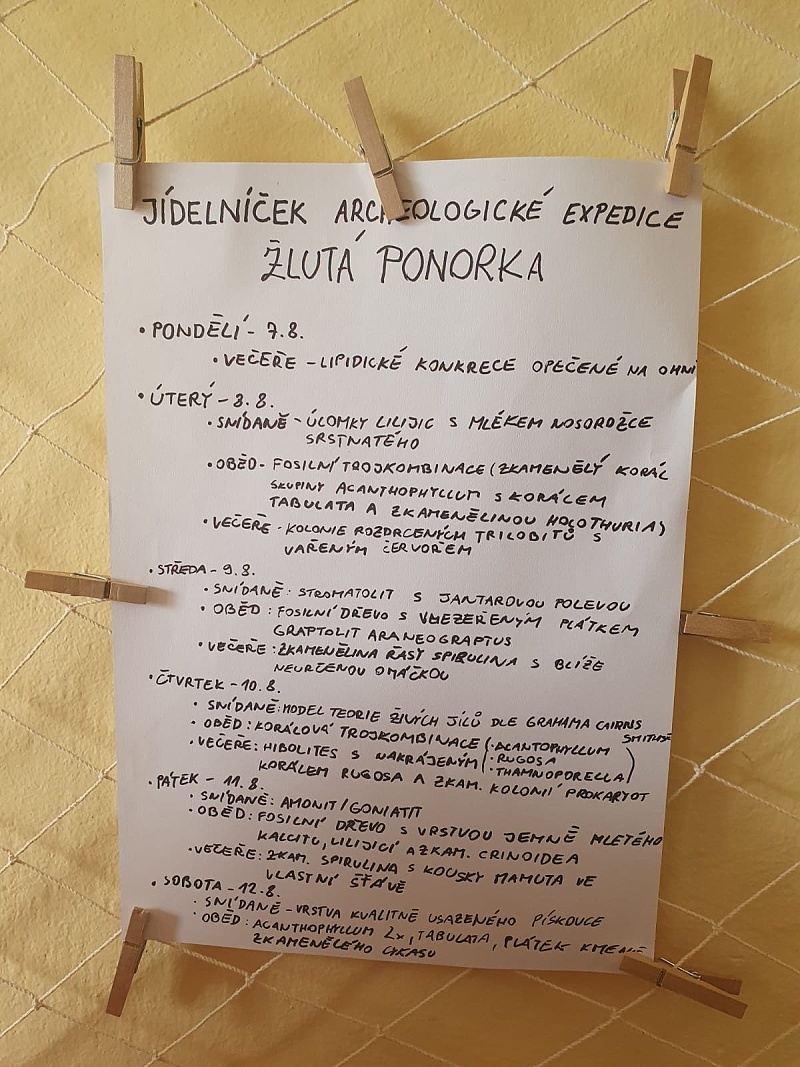 JÍDELNÍČEK ARCHEOLOGICKÉ EXPEDICE
ŽLUTÁ PONORKA
• PONDĚLÍ - 7.8.
• VEČEŘE - LIPIDICKÉ KONKRECE OPEČENÉ NA OHNI
• ÚTERÝ - 8.8.
• SNÍDANĚ - ÚLOMKY LILIJIC S MLÉKEM NOSOROŽCE
SRSTNATÉHO
• OBĚD - FOSILNÍ TROJKOMBINACE (ZKAMENĚLÝ KORÁL
SKUPINY ACANTHOPHYLLUM S KORÁLEM
TABULATA A ZKAMENĚLINOU HOLOTHURIA)
• VEČEŘE - KOLONIE ROZDRCENÝCH TRILOBITŮ S
VAŘENÝM ČERVOŘEM
• STŘEDA - 9.8.
• SNÍDANĚ: STROMATOLIT S JANTAROVOU POLEVOU
• OBĚD: FOSILNÍ DŘEVO S VMEZEŘENÝM PLÁTKEM
GRAPTOLIT ARANEOGRAPTUS
• VEČEŘE: ZKAMENĚLINA ŘASY SPIRULINA S BLÍŽE
NEURČENOU OMÁČKOU
• ČTVRTEK - 10.8.
• SNÍDANĚ: MODEL TEORIE ŽIVÝCH JÍLŮ DLE GRAHAMA CAIRNS
SMITHSE
• OBĚD: KORÁLOVÁ TROJKOMBINACE (• ACANTOPHYLLUM
• RUGOSA
• THAMNOPORELLA)
• VEČEŘE: HIBOLITES S NAKRÁJENÝM
KORÁLEM RUGOSA A ZKAM. KOLONIÍ PROKARYOT
• PÁTEK - 11.8.
• SNÍDANĚ: AMONIT/GONIATIT
• OBĚD: FOSILNÍ DŘEVO S VRSTVOU JEMNĚ MLETÉHO
KALCITU, LILIJICÍ A ZKAM. CRINOIDEA
• VEČEŘE: ZKAM. SPIRULINA S KOUSKY MAMUTA VE
VLASTNÍ ŠŤÁVĚ
• SOBOTA - 12.8.
• SNÍDANĚ - VRSTVA KVALITNĚ USAZENÉHO PÍSKOVCE
• OBĚD: ACANTHOPHYLLUM 2x, TABULATA, PLÁTEK KMENE
ZKAMENĚLÉHO CYKASU